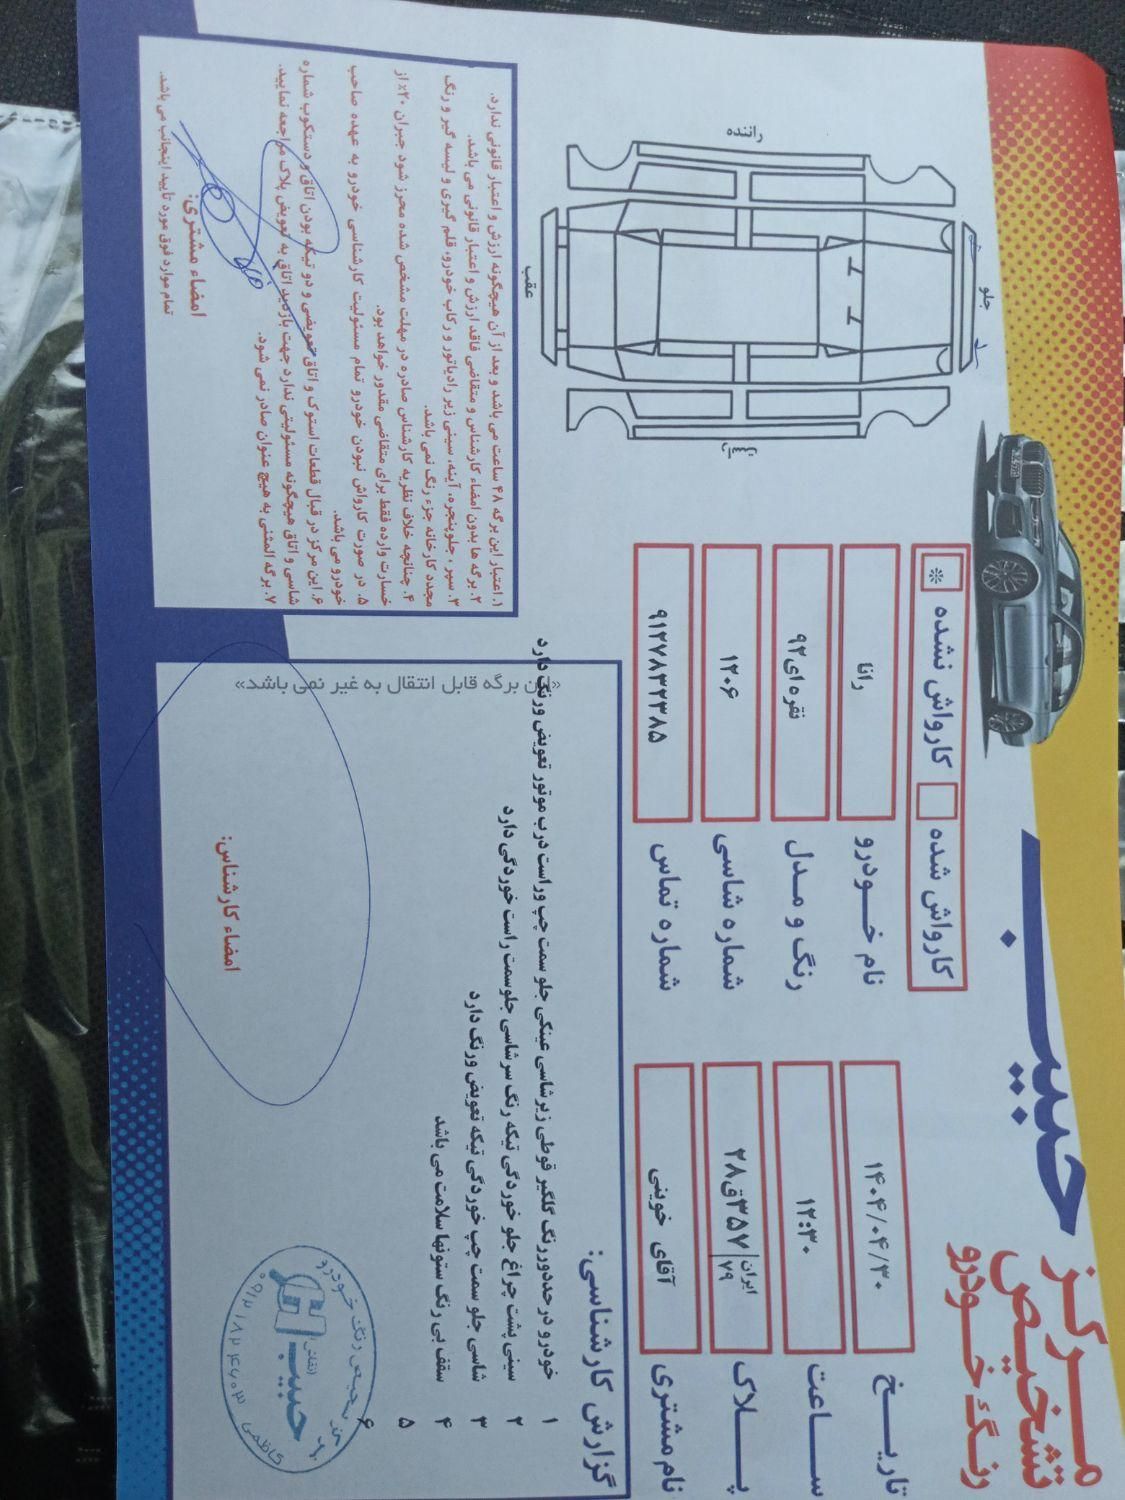 مرکز
تشخیص
رنگ خودرو
حبیب
کارواش شده
کارواش نشده *
تاریخ ۱۴۰۴/۰۴/۳۰
نام خودرو رانا
ساعت ۱۲:۳۰
رنگ و مدل نقره ای ۹۲
پلاک ایران ۷۹ ۳۵۷ق۲۸
شماره شاسی ۱۲۰۶
نام مشتری آقای خوینی
شماره تماس ۹۱۲۷۸۳۲۳۸۵
راننده
جلو
عقب
راست
گزارش کارشناسی:
۱ خودرو در حد دور رنگ گلگیر قوطی زیر شاسی عینکی جلو سمت چپ وراست درب موتور تعویض ورنگ دارد
۲ سینی پشت چراغ جلو خوردگی تیکه رنگ سر شاسی جلوسمت راست خوردگی دارد
۳ شاسی جلو سمت چپ خوردگی تیکه تعویض ورنگ دارد
۴ سقف بی رنگ ستونها سلامت می باشد
۵
۶
«این برگه قابل انتقال به غیر نمی باشد»
امضاء کارشناس:
تشخیص رنگ خودرو
حبیب
(نقاش)
کاظمی
۱. اعتبار این برگه ۴۸ ساعت می باشد و بعد از آن هیچگونه ارزش و اعتبار قانونی ندارد.
۲. برگه ها بدون امضاء کارشناس و متقاضی فاقد ارزش و اعتبار قانونی می باشد.
۳. سپر، جلوپنجره، آینه، سینی زیر رادیاتور و رکاب خودرو، قلم گیری و لیسه گیر و رنگ
مجدد کارخانه جزء رنگ نمی باشد.
۴. چنانچه خلاف نظریه کارشناس صادره در مهلت مشخص شده محرز شود جبران ۲۰٪ از
خسارت وارده فقط برای متقاضی مقدور خواهد بود.
۵. در صورت کارواش نبودن خودرو تمام مسئولیت کارشناسی خودرو به عهده صاحب
خودرو می باشد.
۶. این مرکز در قبال قطعات استوک و اتاق تعویضی و دو تیکه بودن اتاق و دستکوب شماره
شاسی و اتاق هیچگونه مسئولیتی ندارد جهت بازدید اتاق به تعویض پلاک مراجعه نمایید.
۷. برگه المثنی به هیچ عنوان صادر نمی شود.
امضاء مشتری:
تمام موارد فوق مورد تأیید اینجانب می باشد.